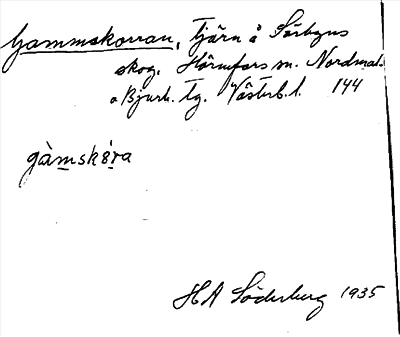 Gammskorran, Tjärn å Sörbyns
skog. Hörnefors sn. Nordmal.
o Bjurh. tg. Västerb. l. 144
gàmskǒ̀ra
H A Söderberg 1935